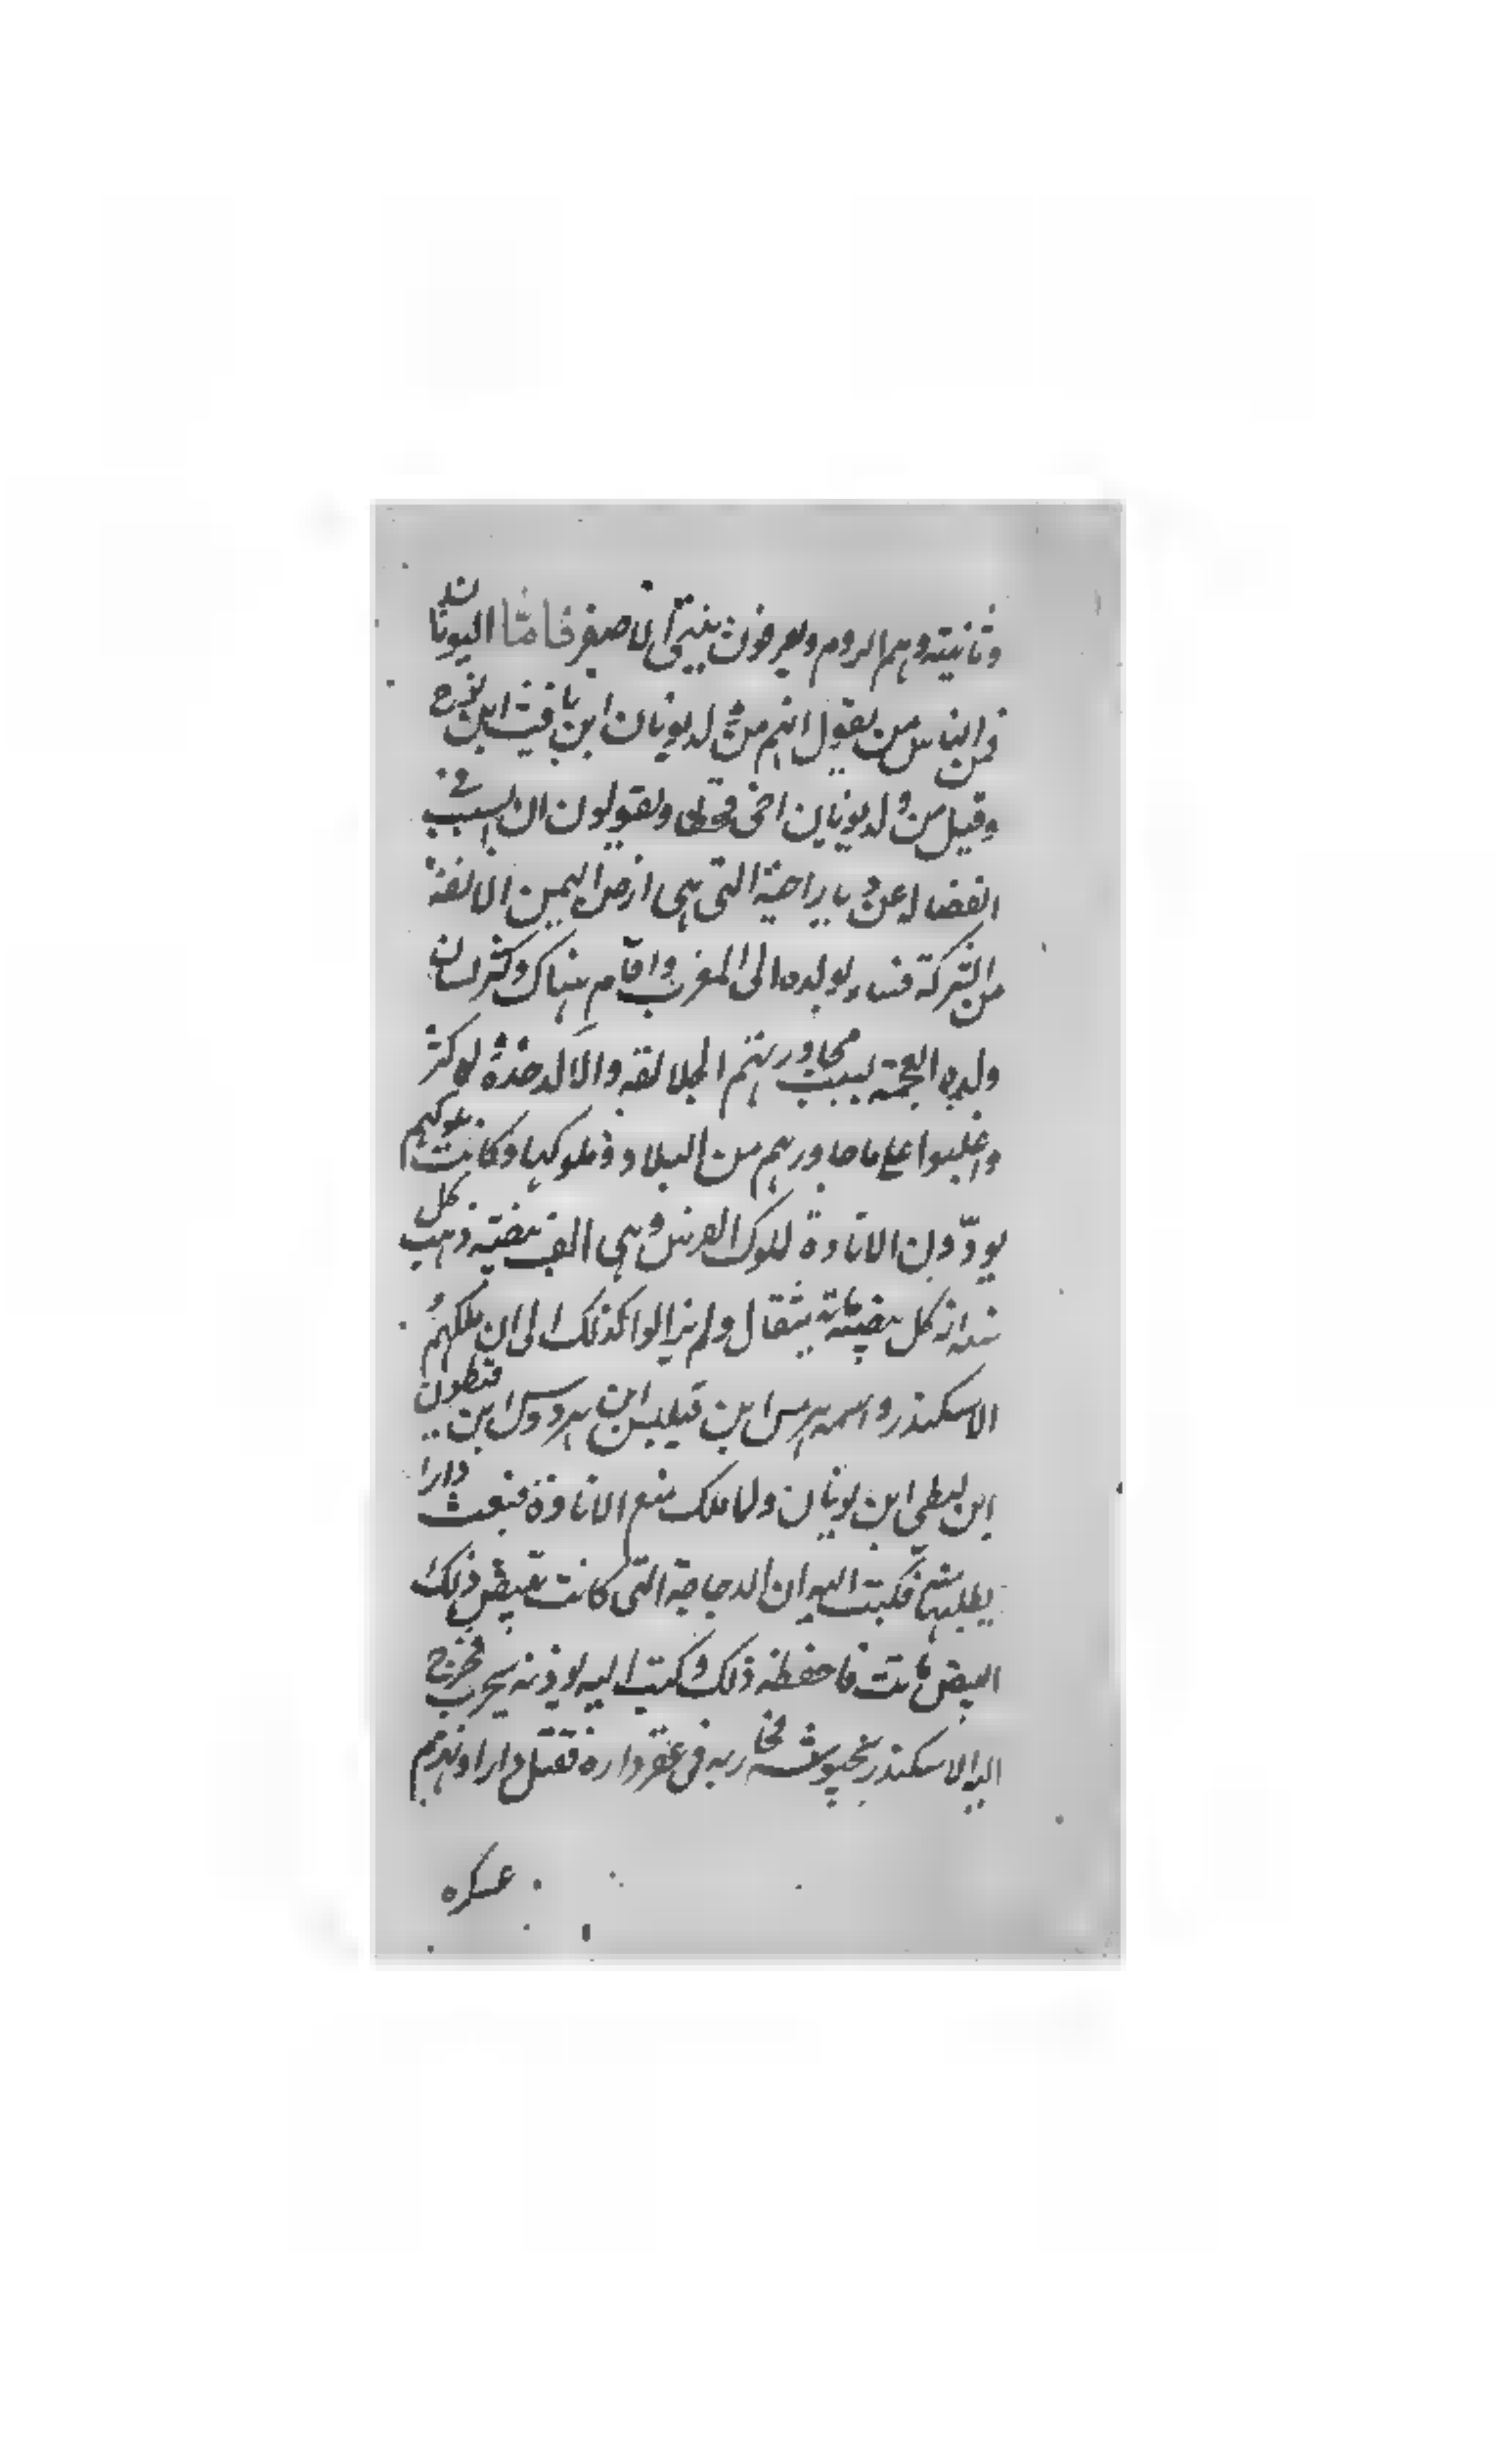 وثانيته وهم الروم ويعرفون ببني الاصفر فاما اليونانيه
فمن الناس من يقول انهم من ولد يونان ابن يافث ابن نوح
وقيل من ولد يونان اخي قحطان ويقولون ان السبب في
انفصاله عن ديار اخيه التي هي ارض اليمن الانفة
من الشركة فسار بولده الى المغرب واقام هناك وكثر لسان
ولده العجمة لسبب مجاورتهم الجلالقة والا لد خذة لو كثر
واغلبوا على ما جاورهم من البلاد وملوكها وكانت ملوكهم
يودون الاتاوة لملوك الفرس وهي الف بيضة ذهب كل
سنة ان كل بيضة مائة مثقال ولم يزالوا كذلك الى ان ملكهم
الاسكندر واسمه هرمس ابن فيلبس ابن هردوس ابن قنطون
ابن ليطي ابن يونان ولما ملك منع الاتاوة فبعث دارا
يطلبها منهم فكتب اليه ان الدجاجة التي كانت تبيض ذلك
البيض ماتت فاحفظه ذلك وكتب اليه يوذنه بحرب فخرج
اليه الاسكندر بجيوشه فحاربه في عقر داره فقتل دارا وانهزم
عسكره